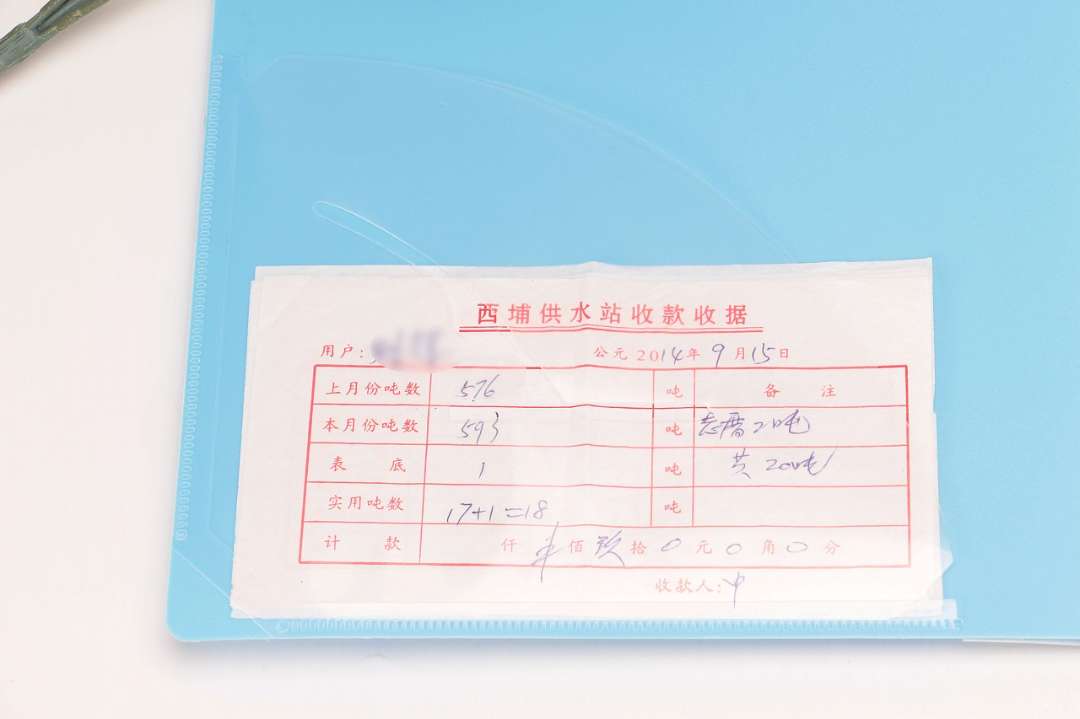 西埔供水站收款收据
用户: 公元 2014年 9月15日
上月份吨数 576 吨 备 注
本月份吨数 593 吨 2吨
表 底 1 吨 黄 20吨
实用吨数 17+1=18 吨
计 款 仟 佰 玖 拾 0 元 0 角 0 分
收款人: